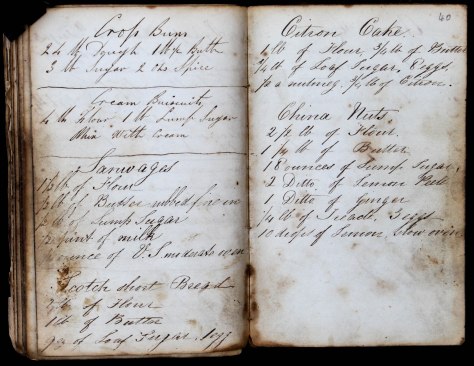 Cross Buns
24 lb Dough 1 lb ½ Butt
3 lb Sugar 2 ozs Spice
Cream Biscuits
4 lb Flour 1 lb Lump Sugar
Mix With Cream
1 ½ lb of Flour
½ lb of Butter rubbed fine in
lb of Lump Sugar
pint of milk
ounce of V.S moderate oven
Scotch short Bread
lb of Flour
1 lb of Butter
of Loaf Sugar, 1 egg
40
Citron Cake
lb of Flour, ¾ lb of Butter
¾ lb of Loaf Sugar, eggs
a nutmeg, lb of Citron.
China Nuts
2 ½ lb of Flour.
1 ½ lb of Butter
18 ounces of Lump Sugar,
2 Ditto, of Lemon Peel
1 Ditto of Ginger
¼ lb of Treacle, 3 eggs
10 drops of Lemon, Slow oven